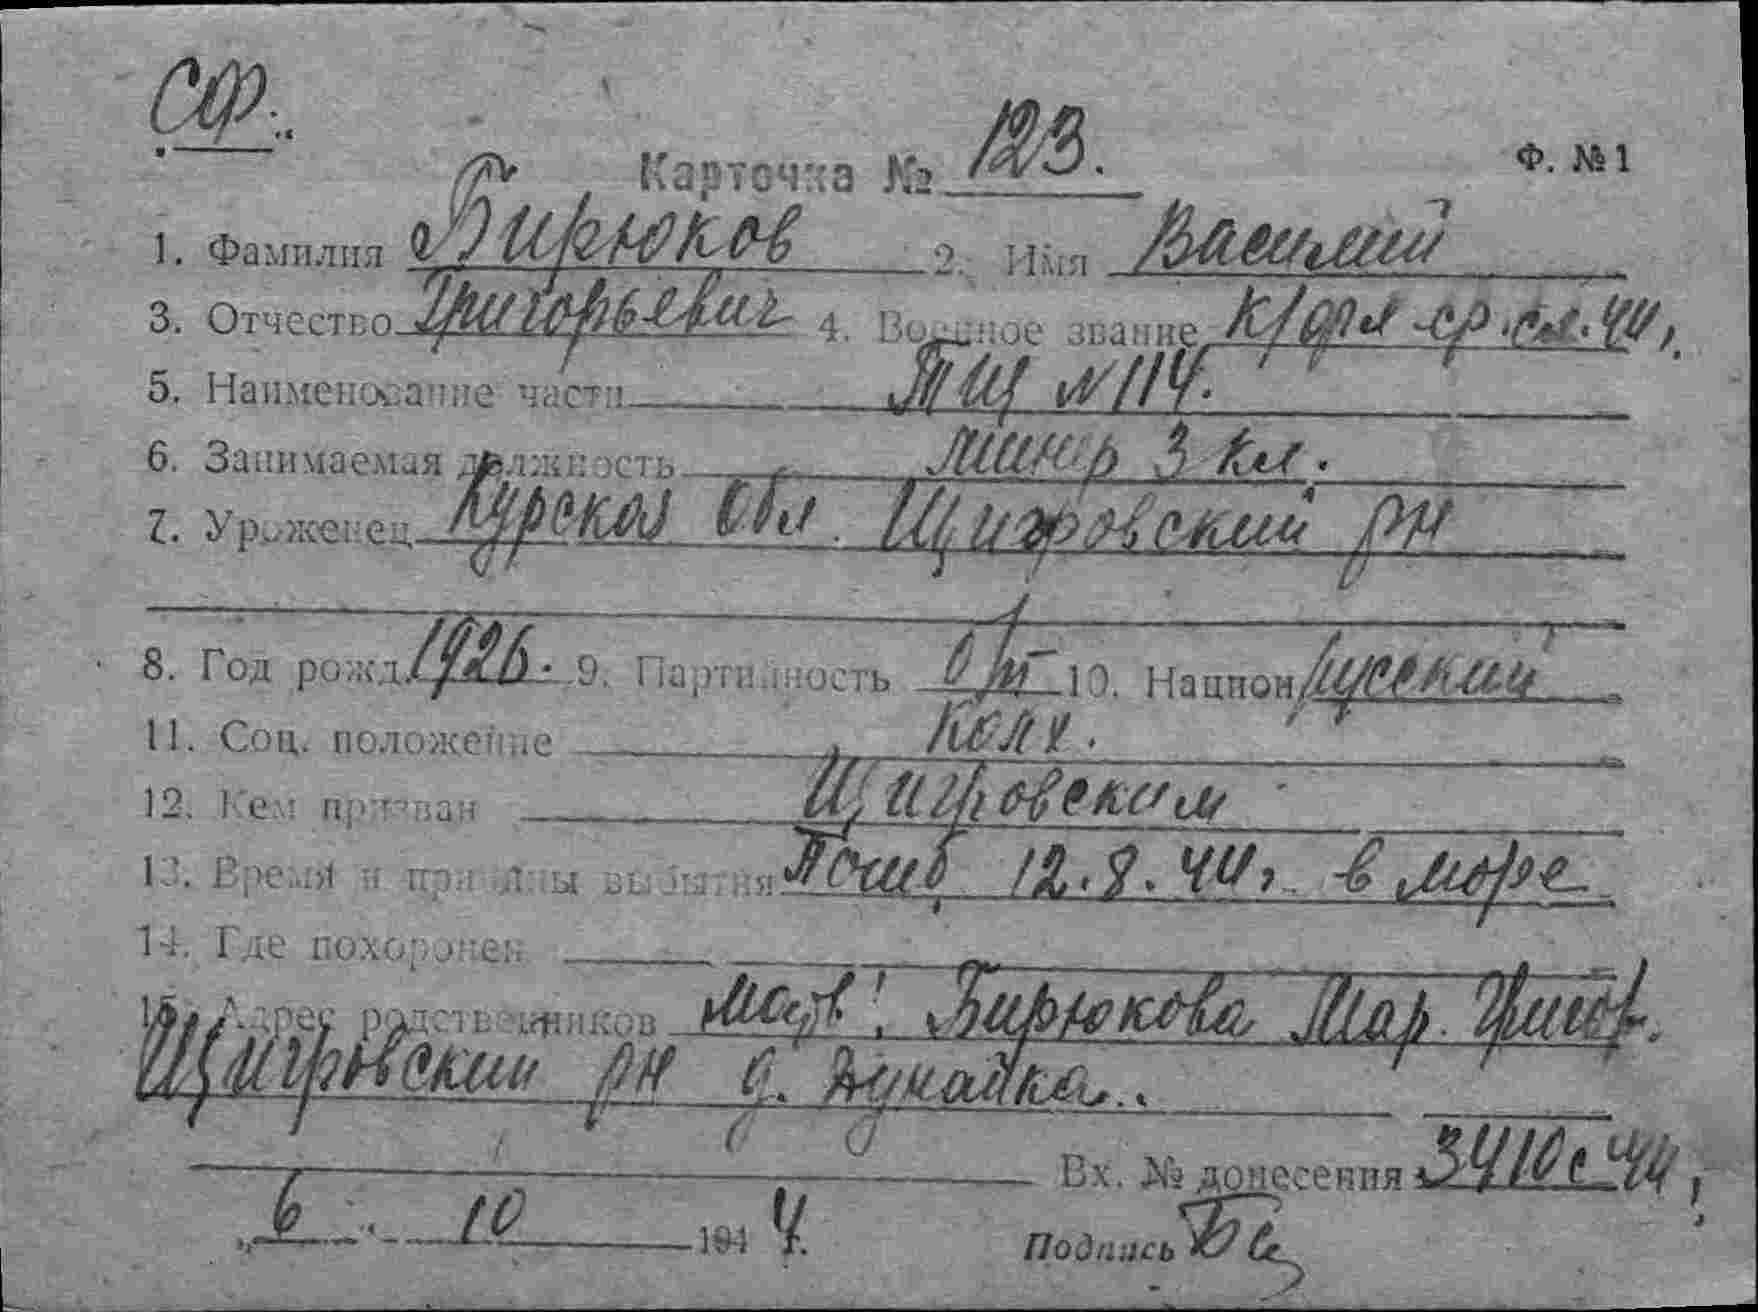 СФ.
Карточка № 123.
Ф. № 1
1. Фамилия Бирюков 2. Имя Василий
3. Отчество Григорьевич 4. Военное звание к/фл ср. сл. 44 г.
5. Наименование части ТЩ N 114.
6. Занимаемая должность минер 3 кл.
7. Уроженец Курская обл. Щигровский рн
8. Год рожд. 1926. 9. Партийность б/п 10. Национ русский
11. Соц. положение колх.
12. Кем призван Щигровским
13. Время и причины выбытия Погиб 12.8.44 г. в море
14. Где похоронен
15. Адрес родственников мать: Бирюкова Мар. Григор.
Щигровский рн д. Дунайка.
Вх. № донесения 3410с 44 г.
„ 6 " 10 194 4.
Подпись